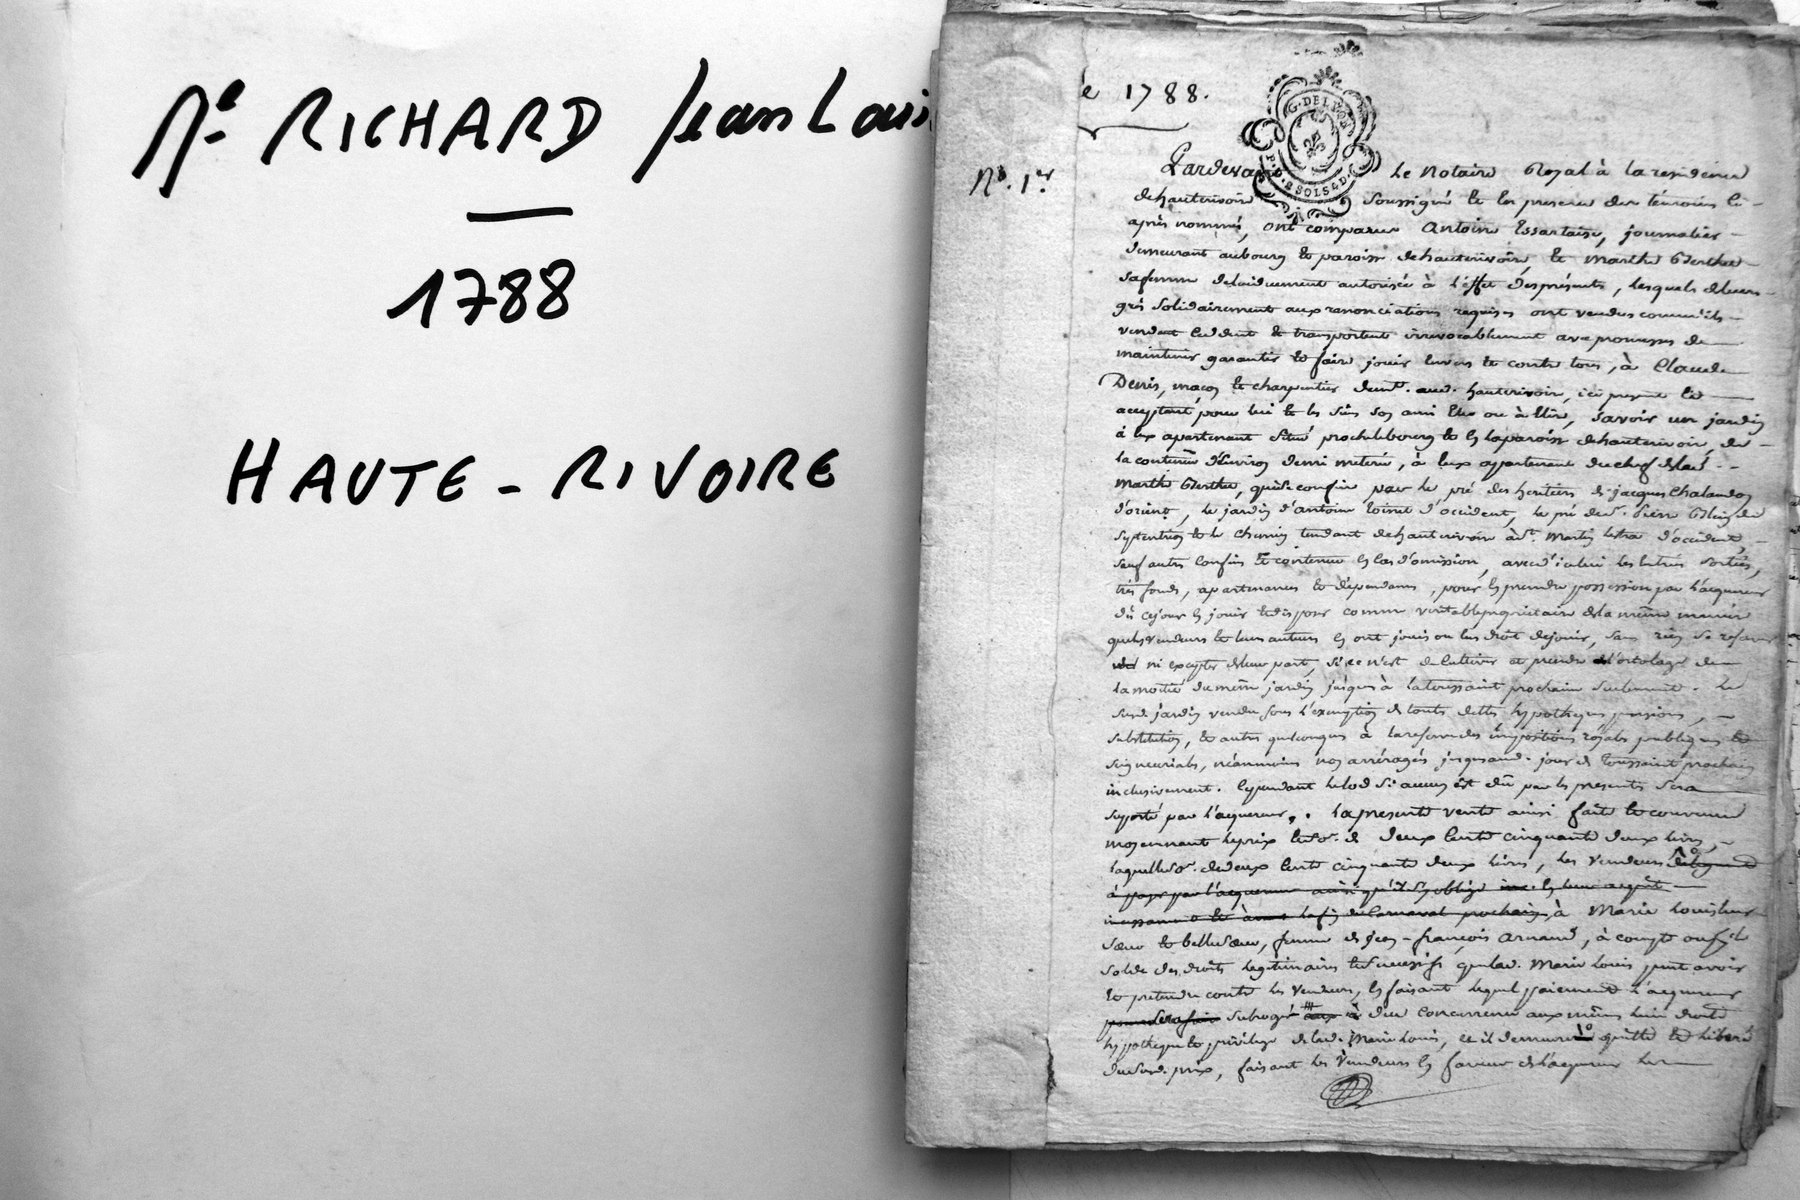 Me RICHARD Jean Loui
1788
HAUTE-RIVOIRE
e 1788.
G. DE LYON
2 SOLS 4 D.
No. 1er
Pardeva Le Notaire Royal à la residence
dehauterivoire soussigné et en presence des témoins ci-
après nommés, ont comparus Antoine Essartaise, journalier
demeurant aubourg et paroisse dehauterivoire, et Marthe Berthet
safemme delui duement autorisée à l'effet des présents, lesquels deleurs
gré solidairement aux renonciations requises ont vendus comm'ils
vendent cedent et transportent irrevocablement avec promesses de
maintenir garantir et faire jouir envers et contre tous, à Claude
Denis, maçon et charpentier demt. aud. hauterivoire, ici present et
acceptant pour lui et les siens son ami elu ou à elire, savoir un jardin
à eux apartenant situé proche lebourg et en laparoisse dehauterivoire, de
la contenue d'environ demi meterée, à eux appartenant duchef delad.
Marthe Berthet, qui se confine par le pré des heritiers de jacques Chalandon
d'orient, le jardin d'antoine d'occident, le pré de sr. Pierre
septentrion et le chemin tendant dehauterivoire à St. Martin lestra d'occident,
sauf autres confins et contenue en cas d'omission, avec d'icelui les entrés sorties,
très fonds, apartenances et dépendances, pour en prendre possession par l'acquereur
dù cejour en jouir et disposer comme veritable propriétaire dela même manière
que les vendeurs et leurs auteurs en ont jouis ou eu droit dejouir, sans rien se reserver
ni excepter deleur part, si ce n'est de cultiver et prendre l'ortolage de
la moitié dumême jardin jusques à latoussaint prochain seulement. Le
susd. jardin vendu sous l'exemption de toutes dettes hypotheques pensions,
substitution, et autres quelconques à lareserve des impositions royales publiques et
seigneuriales, néanmoins nos arrérages jusquaud. jour de toussaint prochain
inclusivement. Cependant lelod si aucun est dû par les presentes sera
suporté par l'acquereur. Lapresente vente ainsi faite et convenue
moyennant leprix et so. de deux cents cinquante deux livres,
laquelle so. dedeux cents cinquante deux livres, les vendeurs deleguent
à payer par l'acquereur ainsi qu'il s'y oblige en leur acquit
la fin de Carnaval prochain, à Marie Louis leur
sœur et belle sœur, femme de Jean-françois Arnaud, à compte ou
solde des droits legitimaires et successifs que lad. Marie Louis peut avoir
et pretendre contre les vendeurs, en faisant lequel paiement l'acquereur
subrogé à due concurrence aux mêmes lieu droits
hypotheque et privilege de lad. Marie Louis, et il demeurera quitte et liberé
dususd. prix, faisant les vendeurs en faveur de l'acquereur